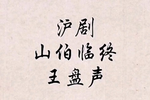 沪剧
山伯临终
王盘声